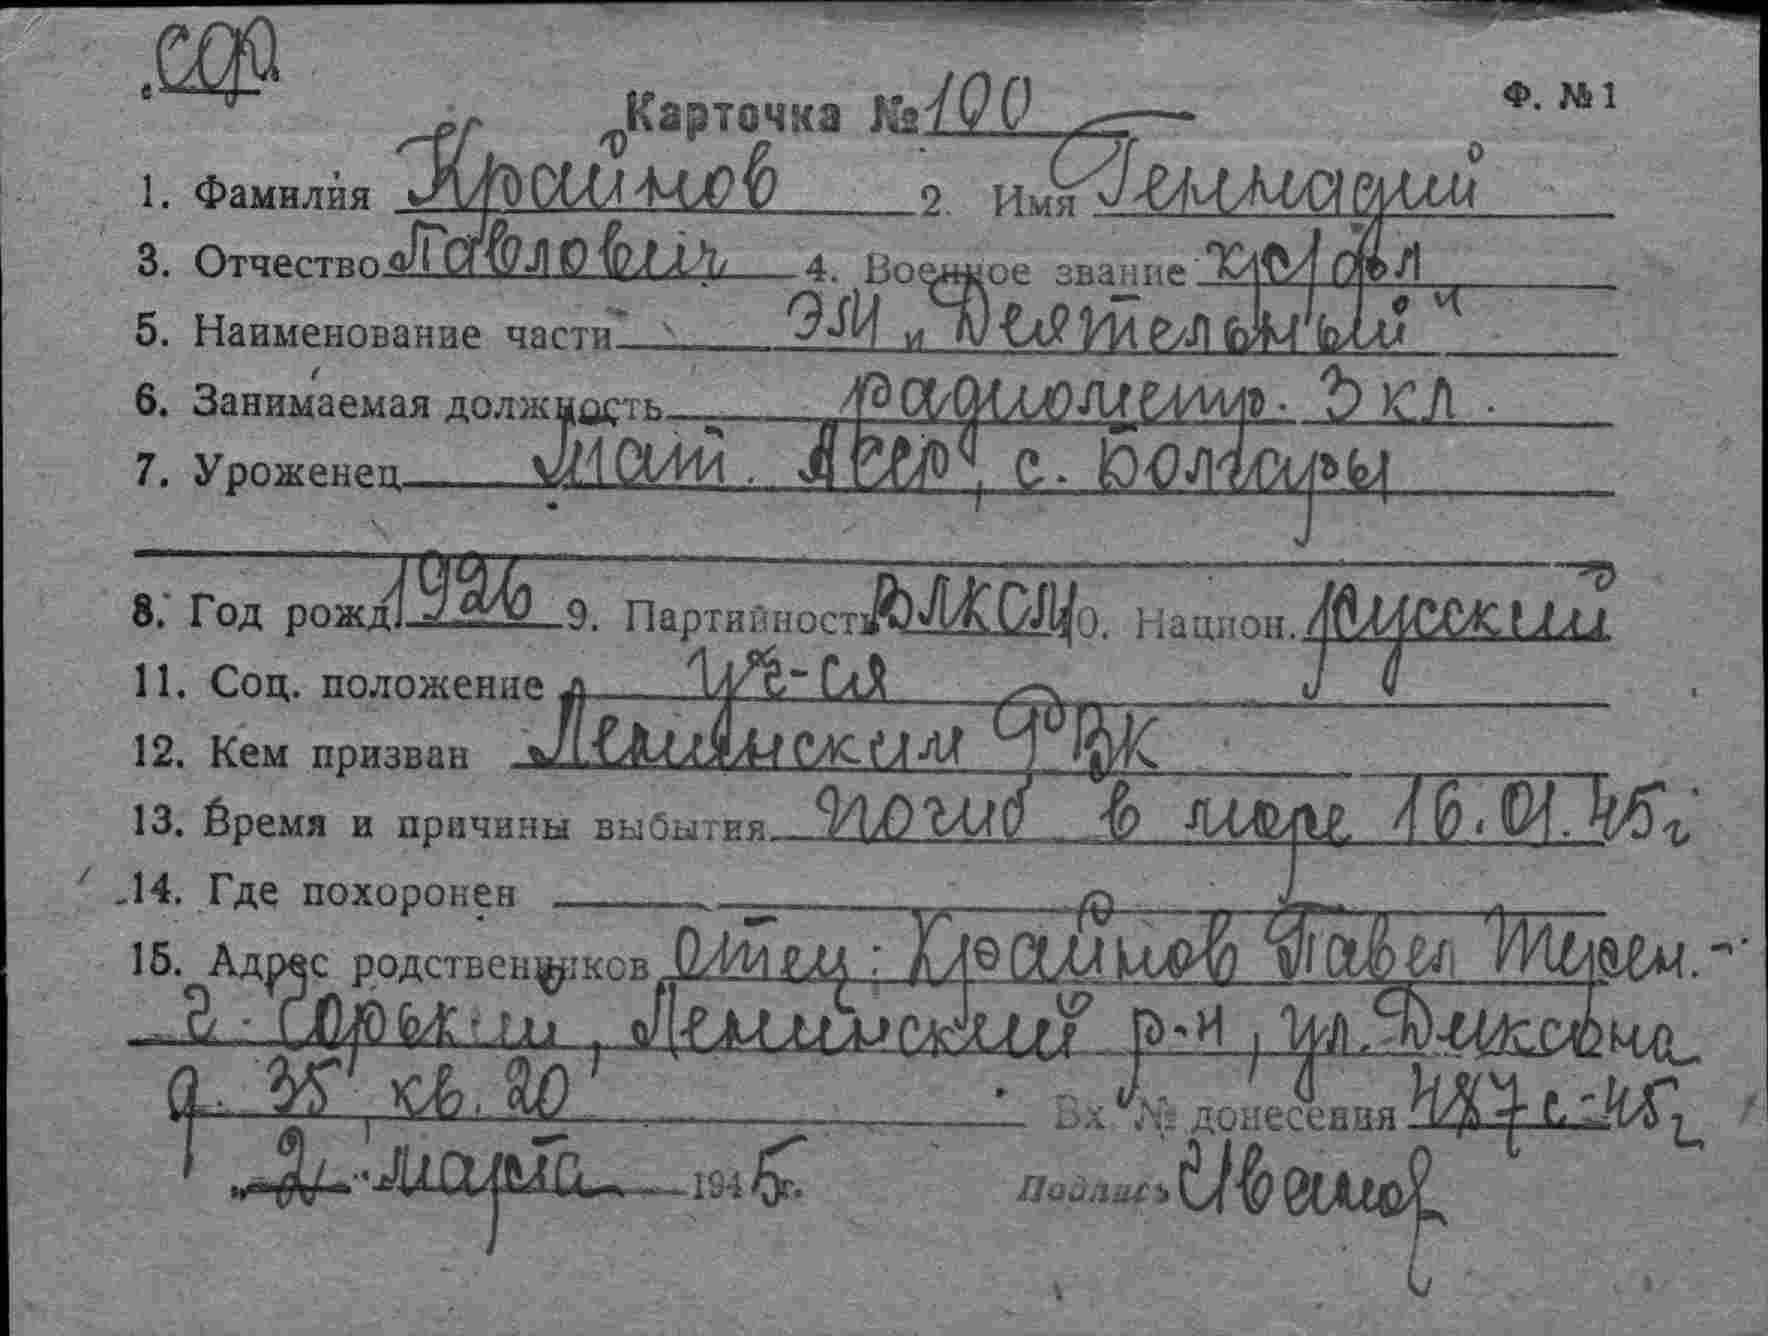 Карточка № 100 Ф. № 1
1. Фамилия Крайнов 2. Имя Геннадий
3. Отчество Павлович 4. Военное звание кр-ф-л
5. Наименование части ЭМ „Деятельный"
6. Занимаемая должность радиометр. 3 кл.
7. Уроженец Тат. Асср, с. Болгары
8. Год рожд. 1926 9. Партийность ВЛКСМ 10. Национ. русский
11. Соц. положение уч-ся
12. Кем призван Ленинским РВК
13. Время и причины выбытия погиб в море 16.01.45г
14. Где похоронен
15. Адрес родственников отец: Крайнов Павел
г. Горький, Ленинский р-н, ул. Диксона
д. 35 кв. 20 Вх № донесения 487с-45г
„2" марта 1945г. Подпись Иванов